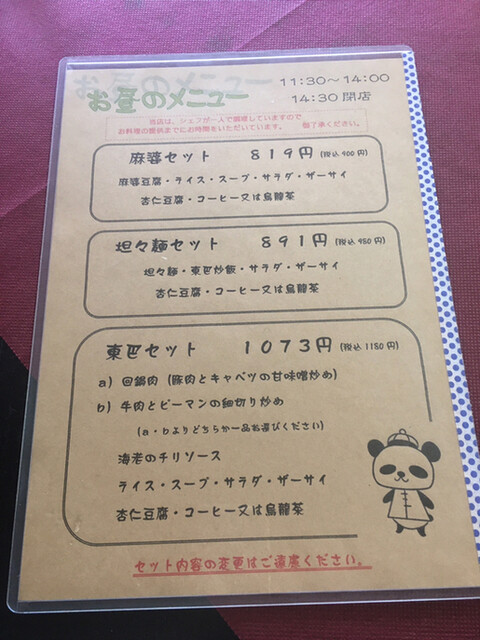 お昼のメニュー
11:30～14:00
14:30 閉店
当店は、シェフが一人で調理していますので
お料理の提供までにお時間をいただいています。 御了承ください。
麻婆セット 819円 (税込 900円)
麻婆豆腐・ライス・スープ・サラダ・ザーサイ
杏仁豆腐・コーヒー又は烏龍茶
坦々麺セット 891円 (税込 980円)
坦々麺・東巴炒飯・サラダ・ザーサイ
杏仁豆腐・コーヒー又は烏龍茶
東巴セット 1073円 (税込 1180円)
a) 回鍋肉 (豚肉とキャベツの甘味噌炒め)
b) 牛肉とピーマンの細切り炒め
(a・bよりどちらか一品お選びください)
海老のチリソース
ライス・スープ・サラダ・ザーサイ
杏仁豆腐・コーヒー又は烏龍茶
セット内容の変更はご遠慮ください。